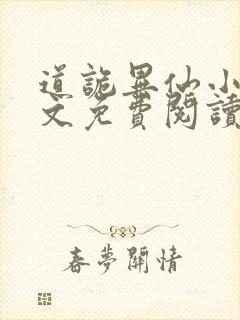 道詭異仙小
文免費閱讀
春夢關情